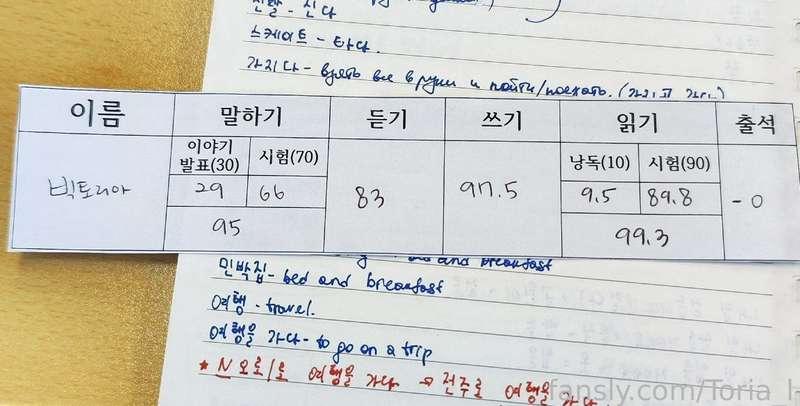 신발 - 신다
스케이트 - 타다.
가지다 - взять все в руки и пойти/поехать.
이름 말하기 듣기 쓰기 읽기 출석
이야기 발표(30) 시험(70) 낭독(10) 시험(90)
빅토리아 29 66 83 97.5 9.5 89.8 -0
95 99.3
and breakfast
민박집 - bed and breakfast
여행 - travel.
여행을 가다 - to go on a trip
* N으로/로 여행을 가다 → 전주로 여행을
fansly.com/Toria_